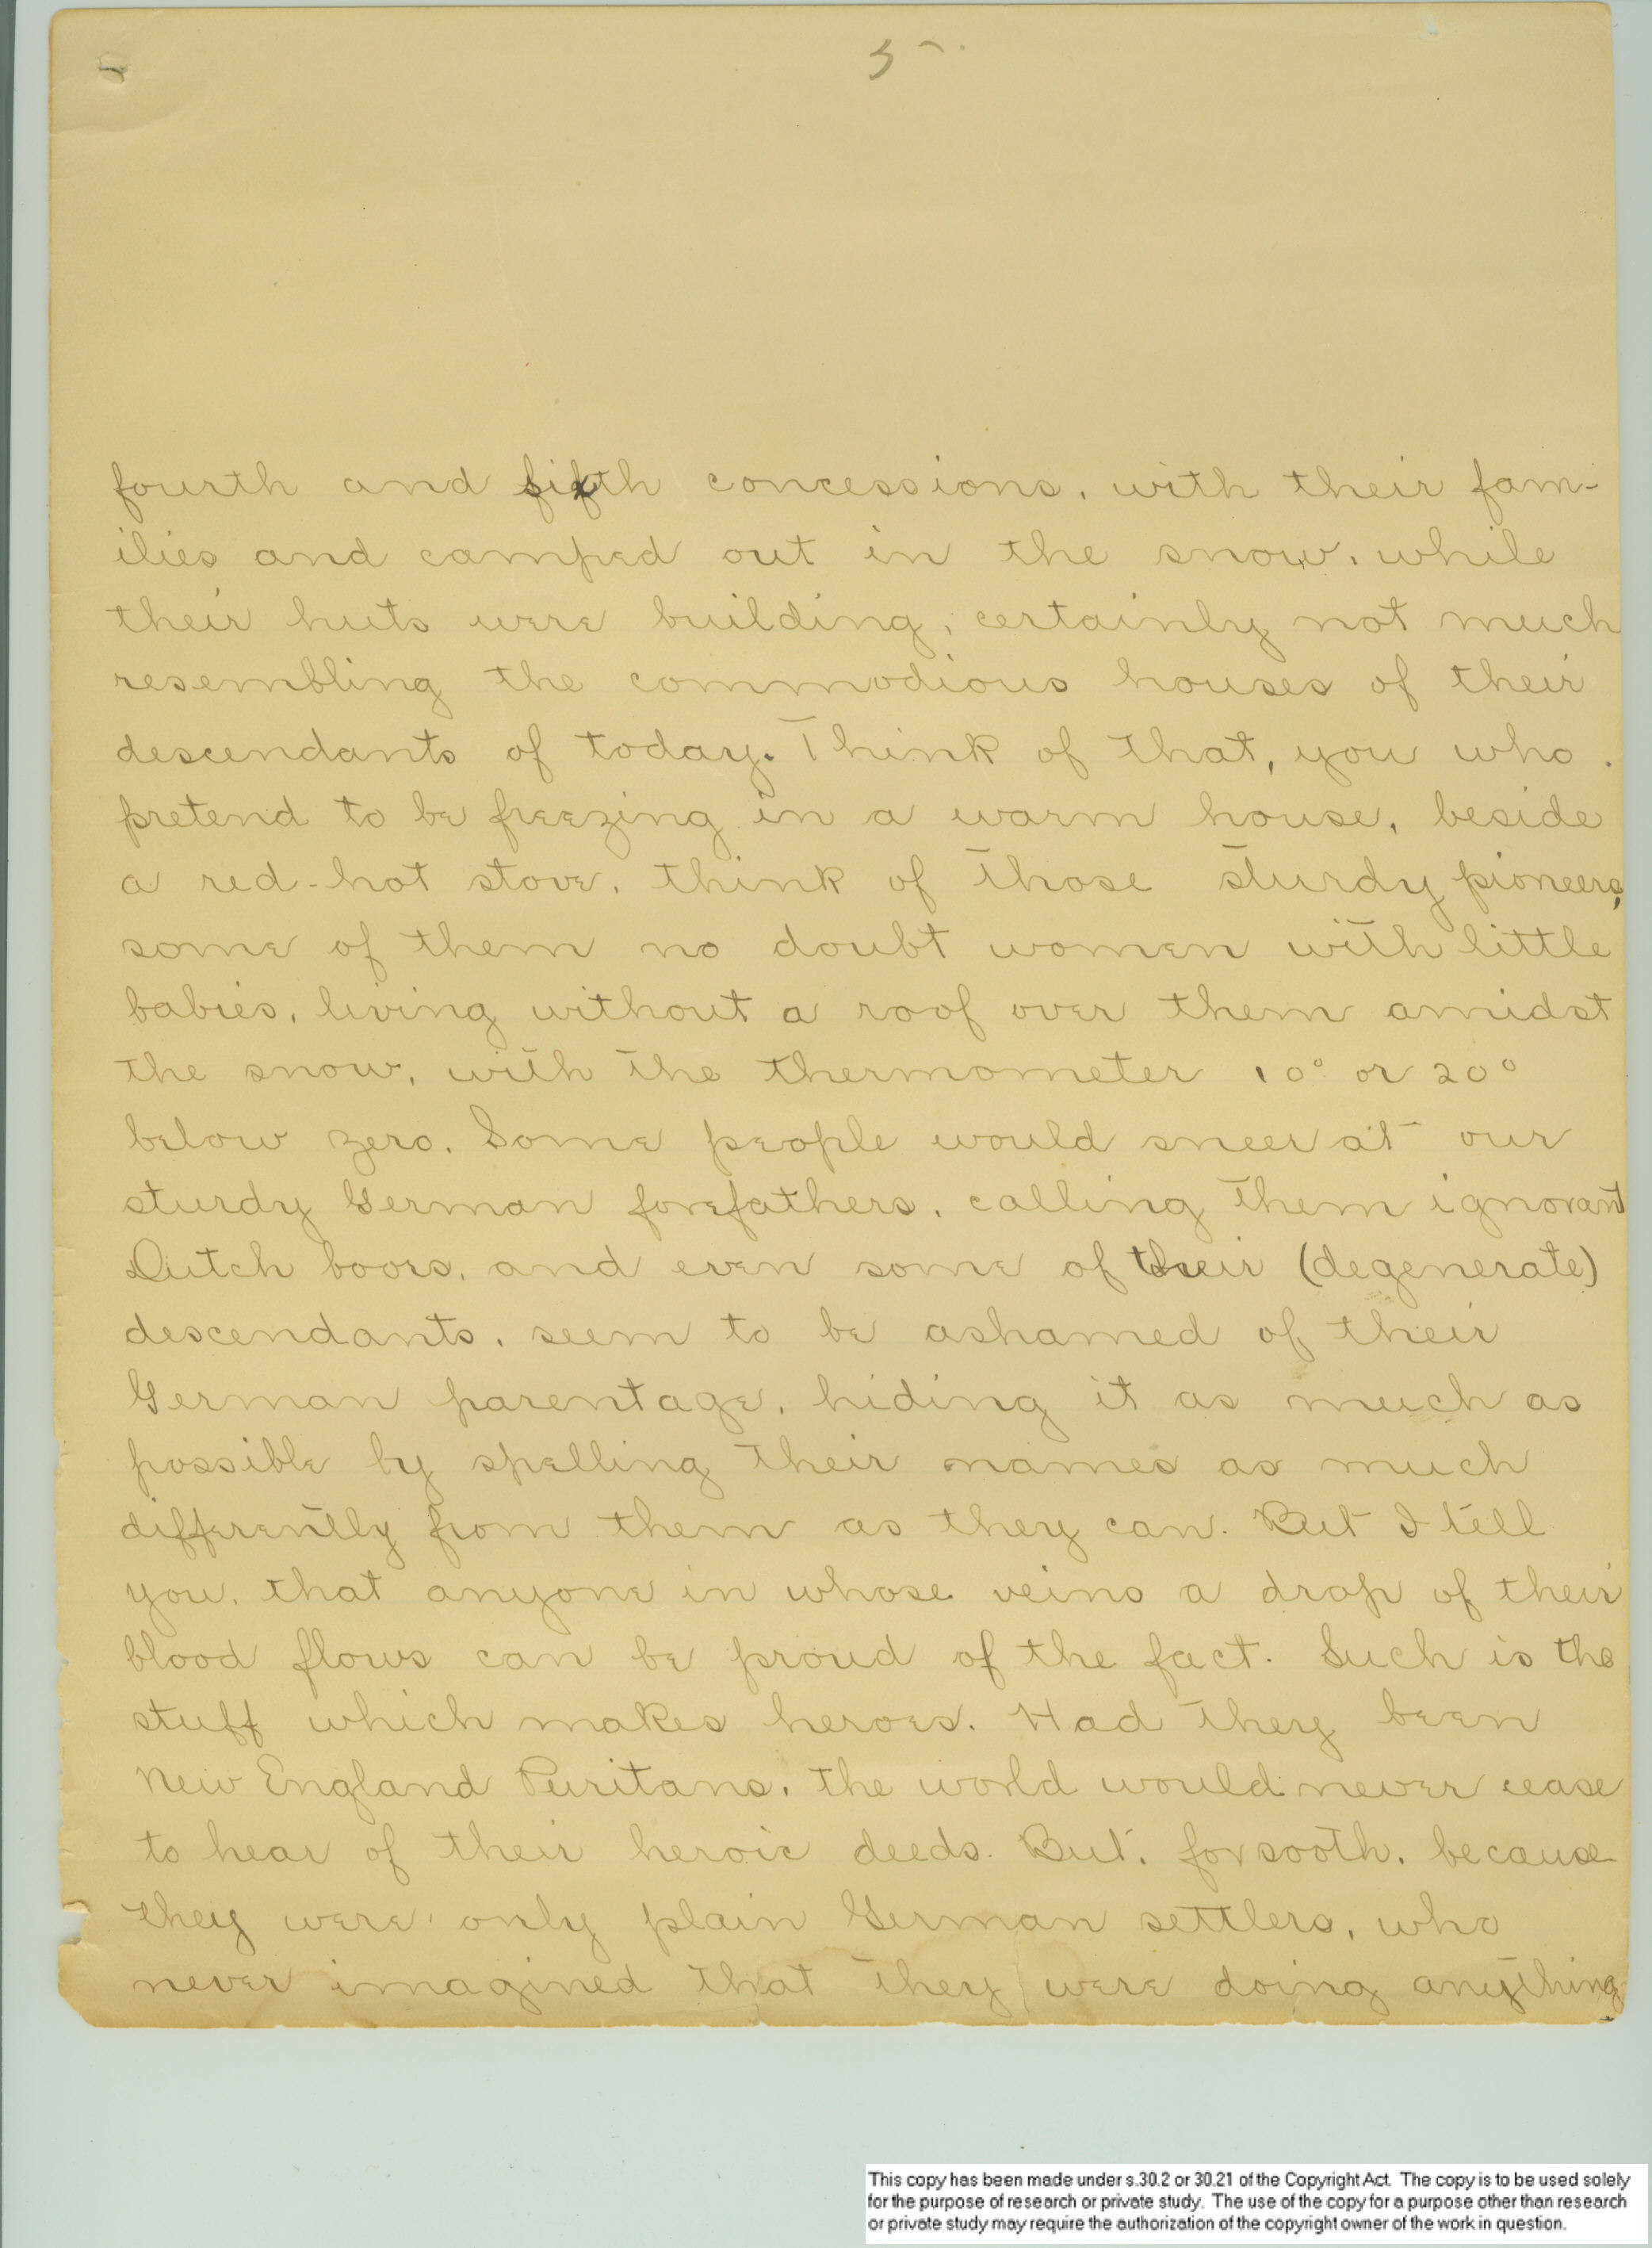 5
fourth and fifth concessions, with their fam-
ilies and camped out in the snow, while
their huts were building, certainly not much
resembling the commodious houses of their
descendants of today. Think of that, you who
pretend to be freezing in a warm house, beside
a red-hot stove, think of those sturdy pioneers,
some of them no doubt women with little
babies, living without a roof over them amidst
the snow, with the thermometer 10° or 20°
below zero. Some people would sneer at our
sturdy German forefathers, calling them ignorant
Dutch boors, and even some of their (degenerate)
descendants, seem to be ashamed of their
German parentage, hiding it as much as
possible by spelling their names as much
differently from them as they can. But I tell
you, that anyone in whose veins a drop of their
blood flows can be proud of the fact. Such is the
stuff which makes heroes. Had they been
New England Puritans, the world would never cease
to hear of their heroic deeds. But, forsooth, because
they were only plain German settlers, who
never imagined that they were doing anything
This copy has been made under s.30.2 or 30.21 of the Copyright Act. The copy is to be used solely
for the purpose of research or private study. The use of the copy for a purpose other than research
or private study may require the authorization of the copyright owner of the work in question.